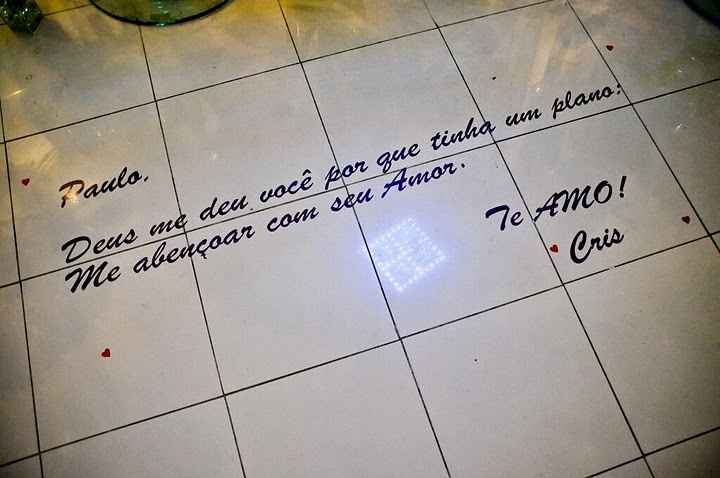 Paulo,
Deus me deu você por que tinha um plano:
Me abençoar com seu Amor.
Te AMO!
Cris